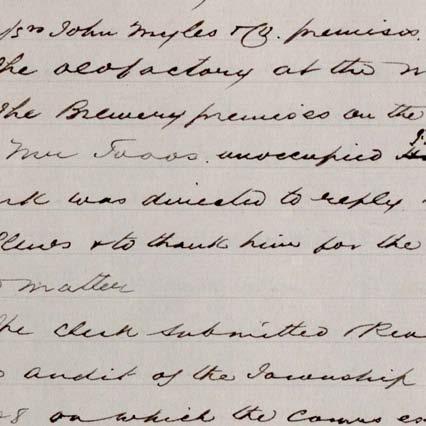 John Myles & Co. premises.
The oleofactory at the
The Brewery premises on the
Mr Toaas. unoccupied
rk was directed to reply
Clews & to thank him for the
matter
The Clerk submitted
audit of the Township
on which the Comes